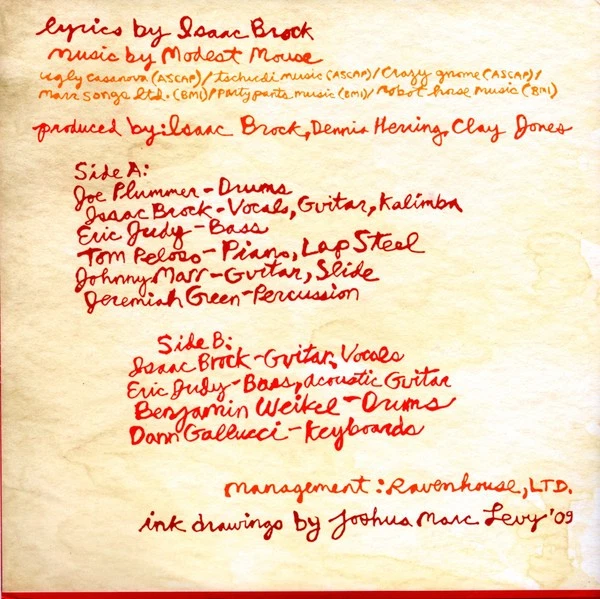 lyrics by Isaac Brock
music by Modest Mouse
ugly casanova (ASCAP)/tschudi music (ASCAP)/Crazy gnome (ASCAP)/
Marr Songs ltd. (BMI)/Party parts music (BMI)/robot horse music (BMI)
produced by: Isaac Brock, Dennis Herring, Clay Jones
Side A:
Joe Plummer - Drums
Isaac Brock - Vocals, Guitar, Kalimba
Eric Judy - Bass
Tom Peloso - Piano, Lap Steel
Johnny Marr - Guitar, Slide
Jeremiah Green - Percussion
Side B:
Isaac Brock - Guitar, Vocals
Eric Judy - Bass, acoustic Guitar
Benjamin Weikel - Drums
Dann Gallucci - Keyboards
management: Ravenhouse, LTD.
ink drawings by Joshua Marc Levy '09